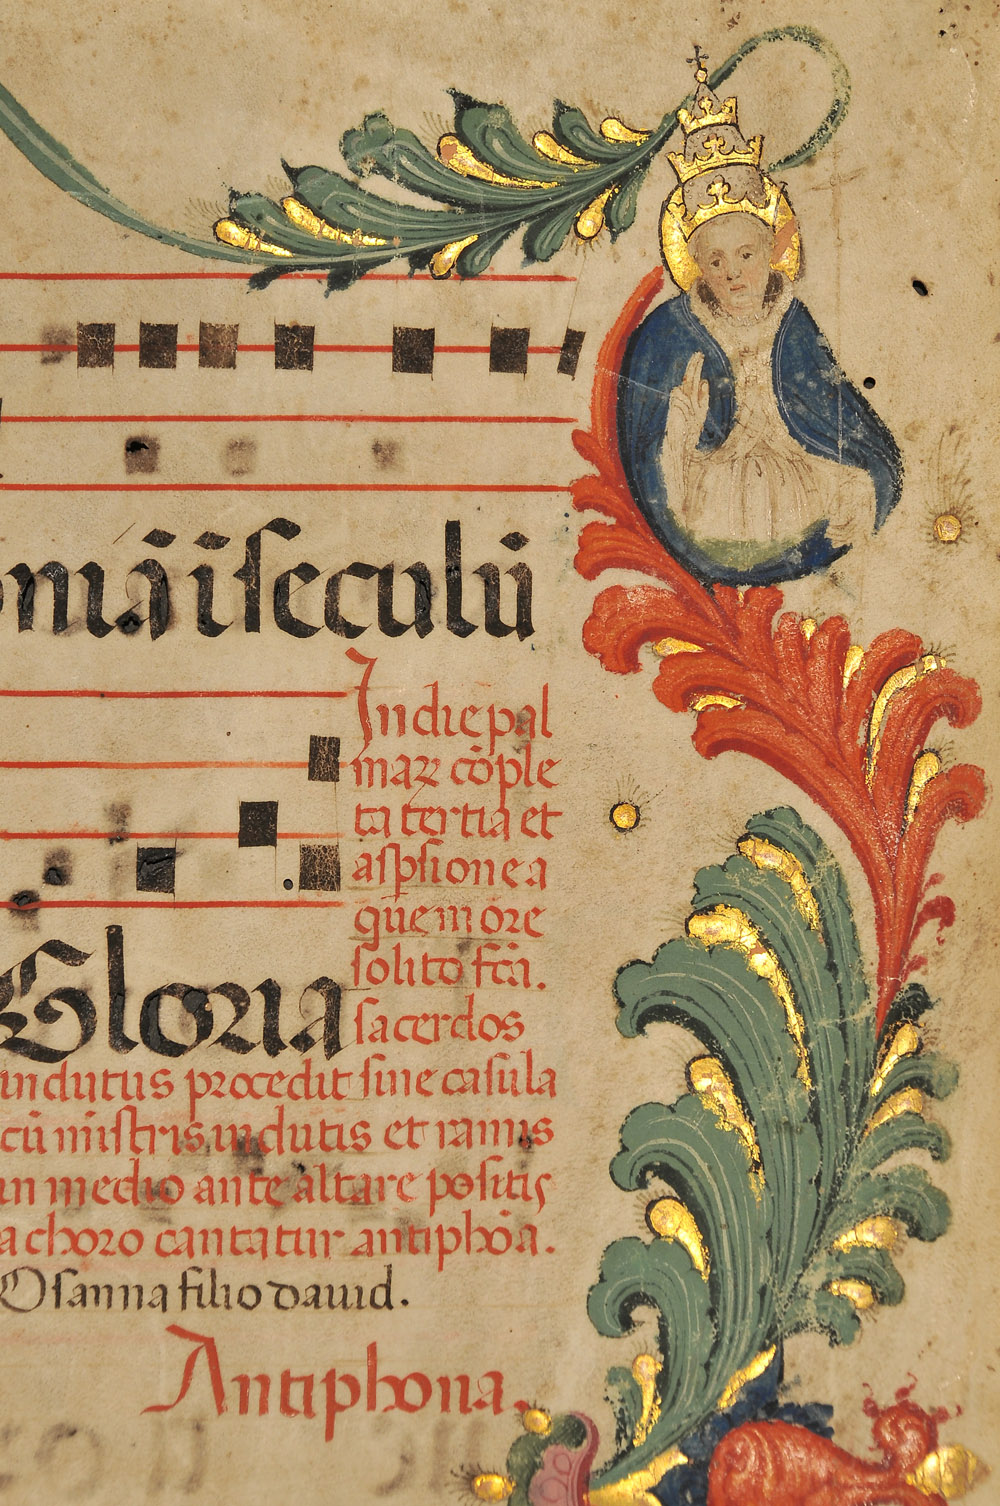 omā i seculū
In die pal
maꝝ cōple
ta tertia et
aspsione a
que more
solito fcā.
Gloria sacerdos
indutus procedit sine casula
cū mīstris indutis et ramis
in medio ante altare positis
a choro cantatur antiphōa.
Osanna filio dauid.
Antiphona.